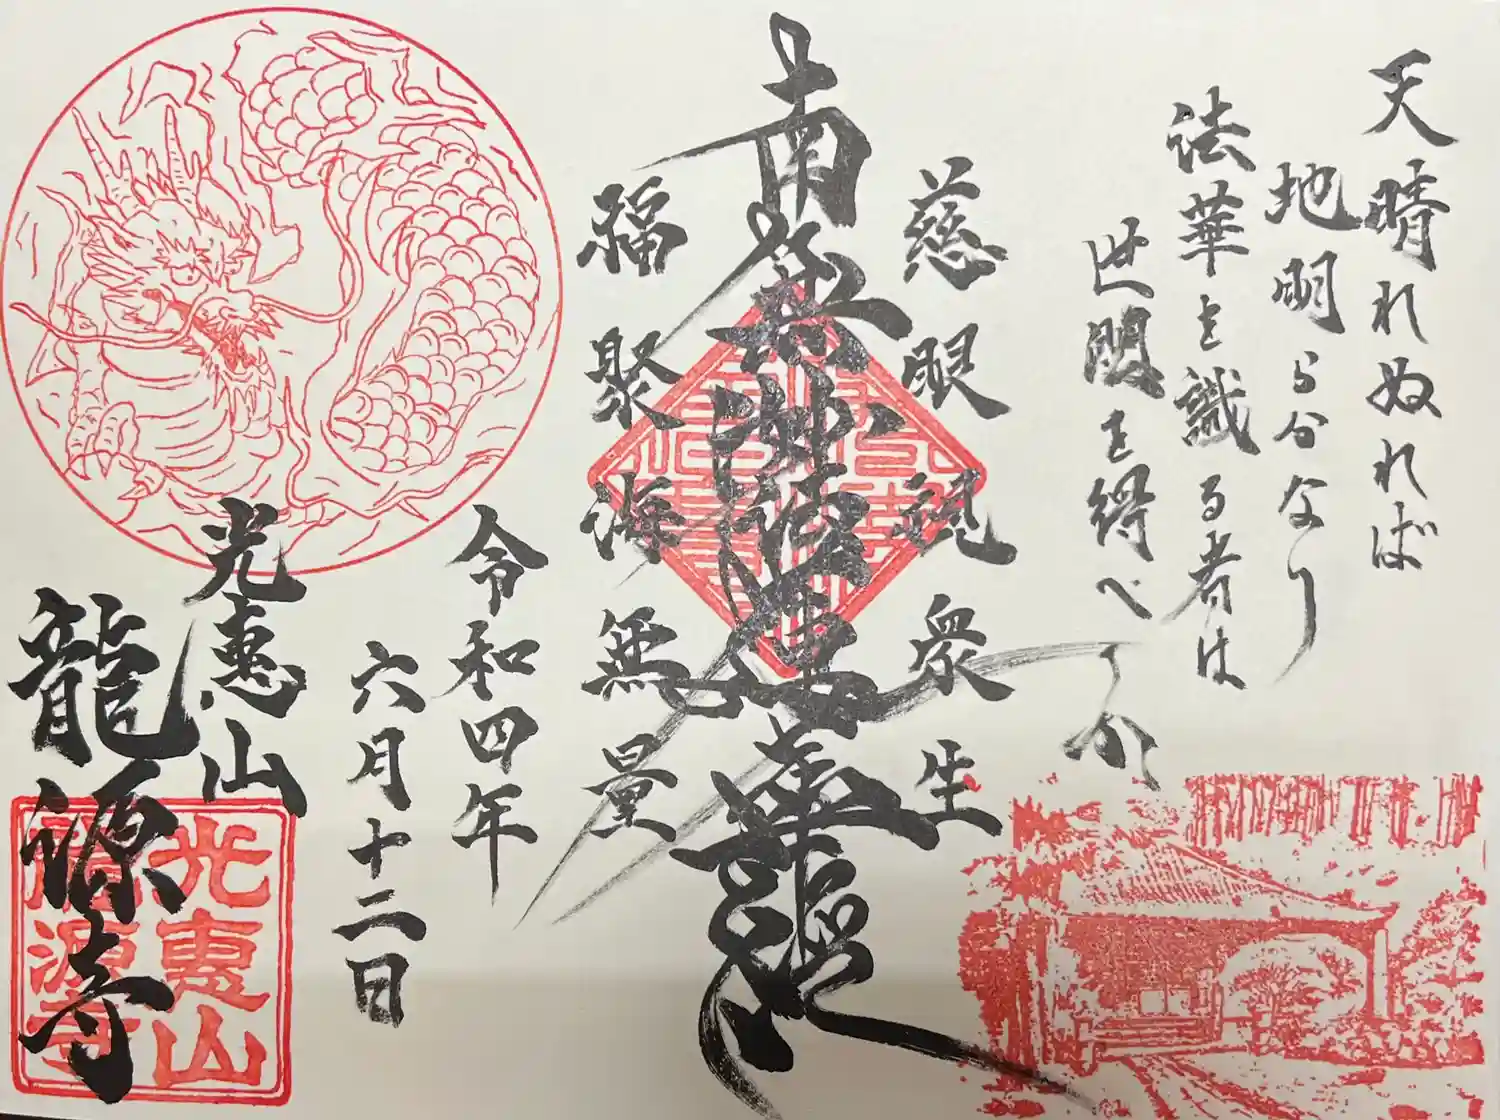 天晴れぬれば
地明らかなり
法華を識る者は
世間を得べ
きか
慈眼視衆生
南無妙法蓮華経
福聚海無量
令和四年
六月十二日
光恵山
龍源寺
光恵山
龍源寺